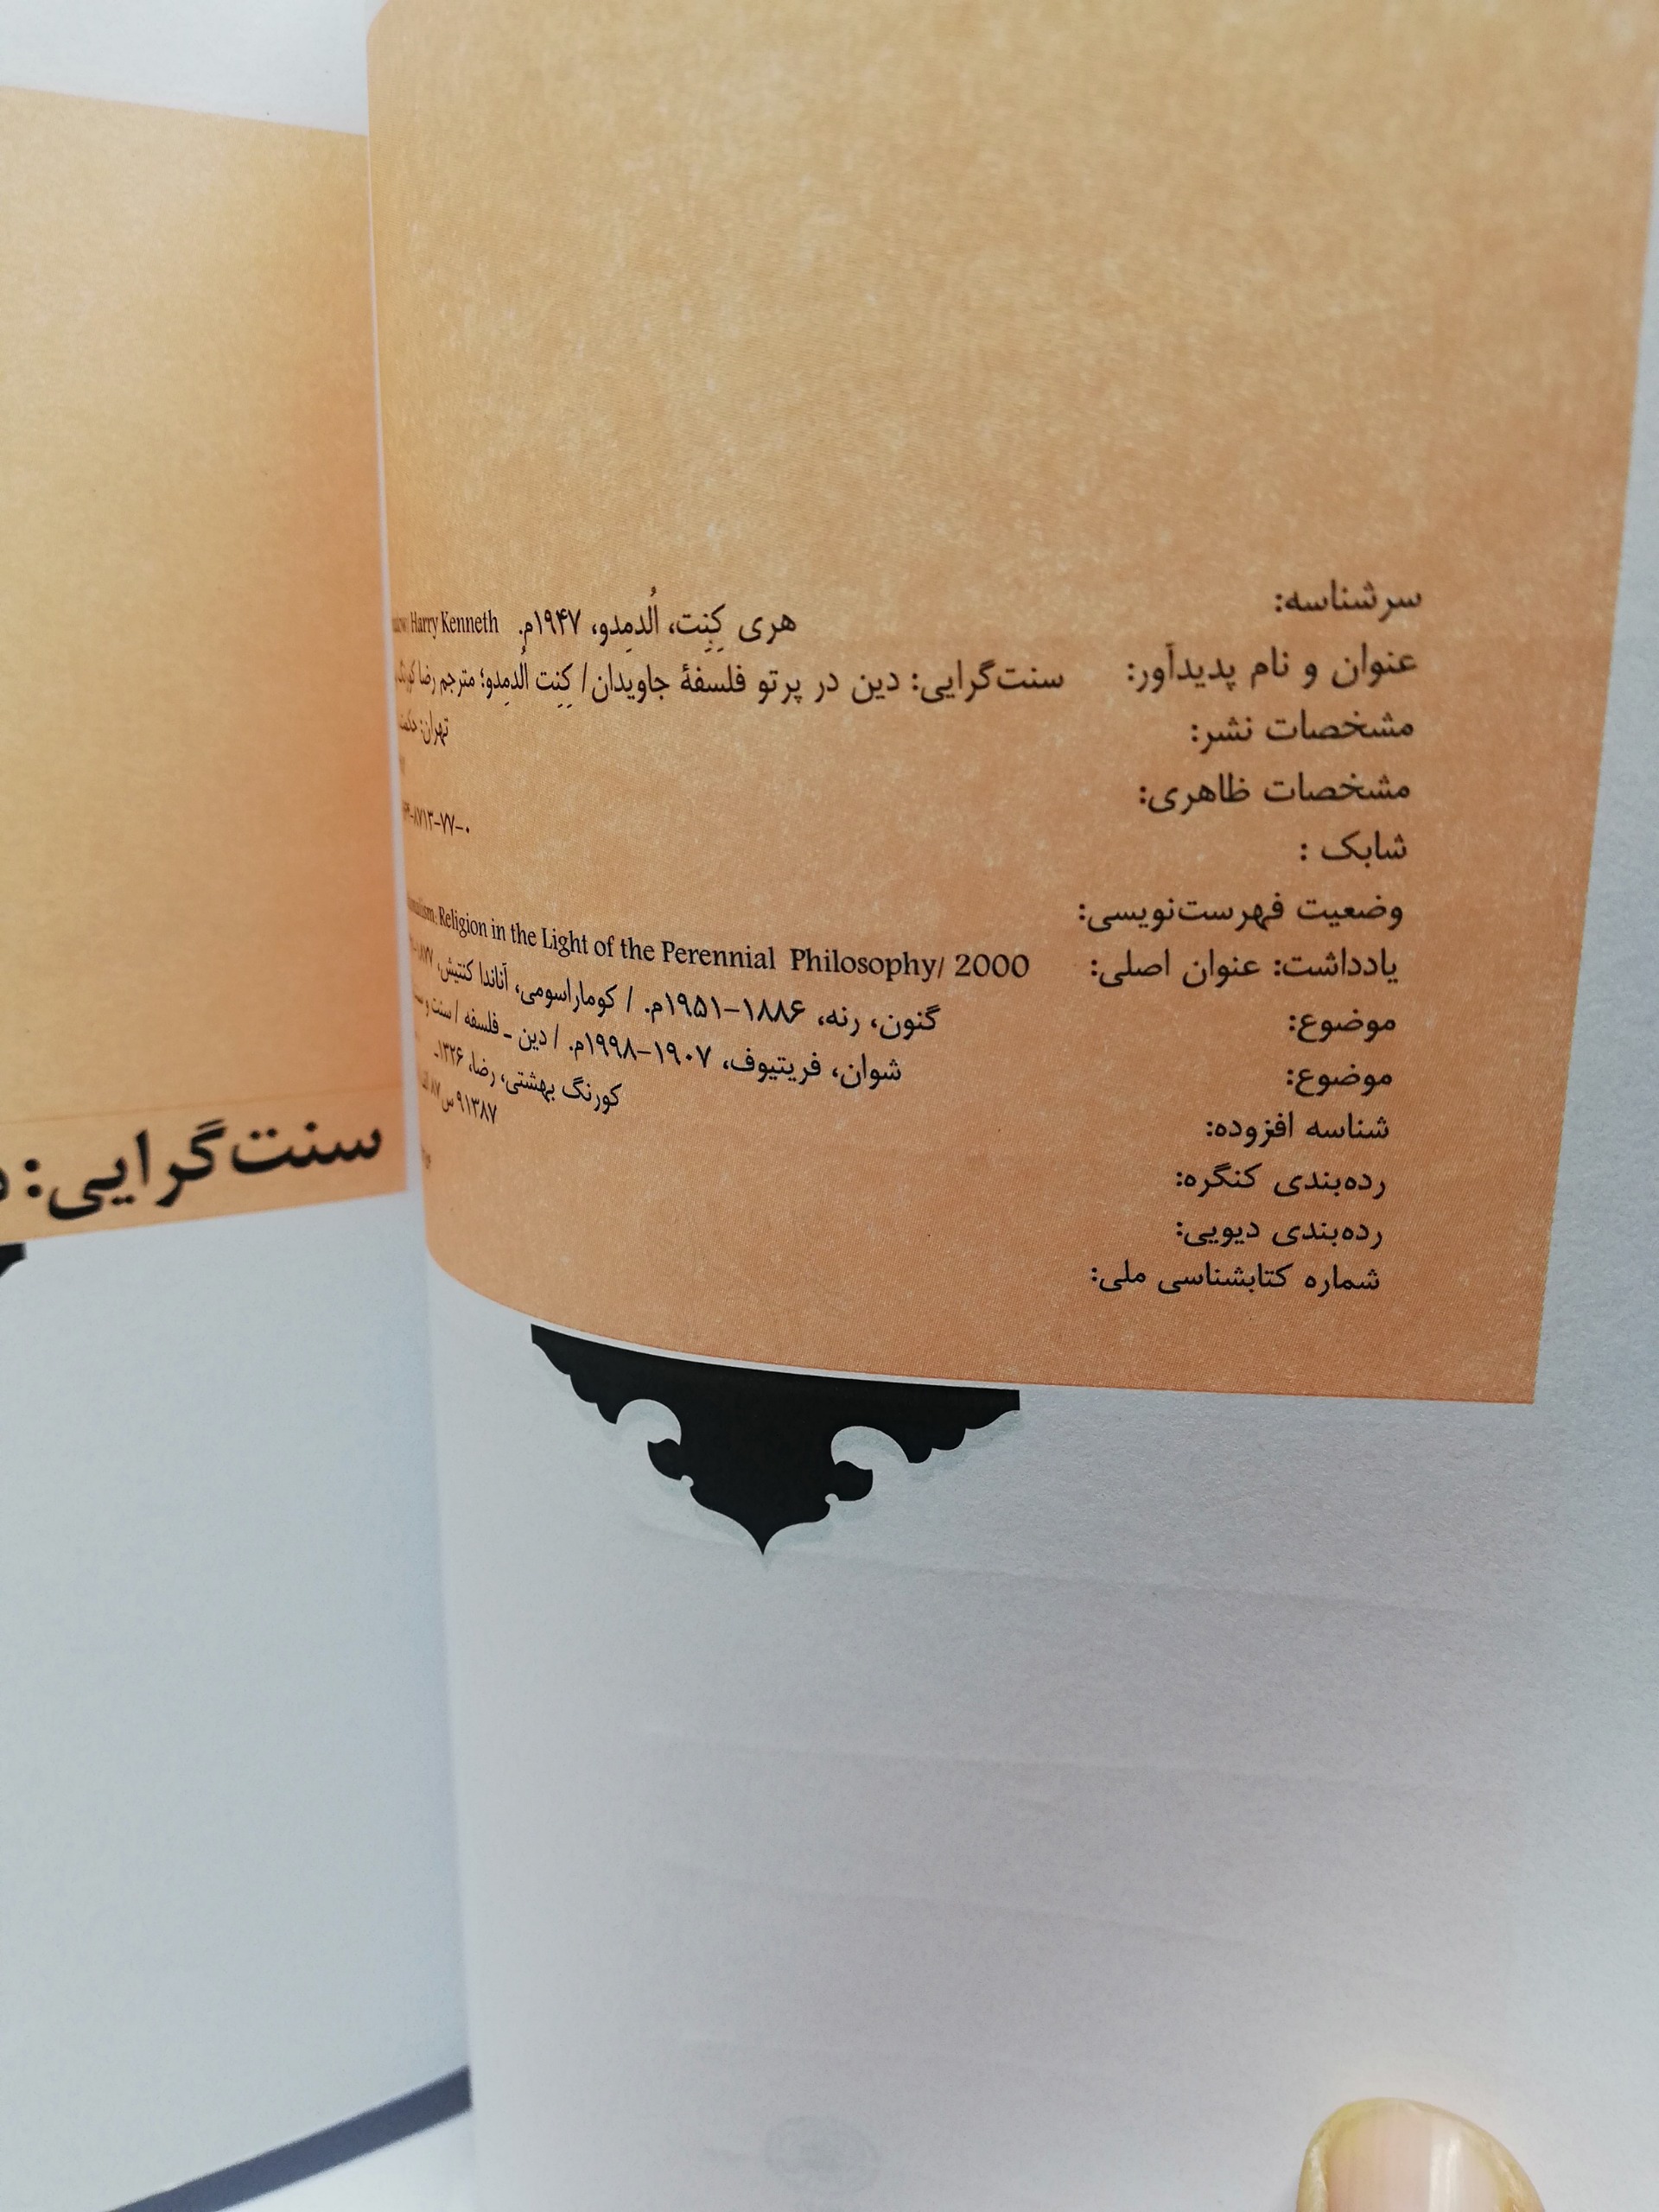 سرشناسه: هری کِنِت، اُلدمِدو، ۱۹۴۷م. Harry Kenneth
عنوان و نام پدیدآور: سنت‌گرایی: دین در پرتو فلسفهٔ جاویدان/ کِنِت اُلدمِدو؛ مترجم رضا
مشخصات نشر: تهران:
مشخصات ظاهری:
شابک : ۸۷۱۳-۷۷-۰
وضعیت فهرست‌نویسی:
یادداشت: عنوان اصلی: Religion in the Light of the Perennial Philosophy/ 2000
موضوع: گنون، رنه، ۱۸۸۶-۱۹۵۱م. / کوماراسومی، آناندا کنتیش،
موضوع: شوان، فریتیوف، ۱۹۰۷-۱۹۹۸م. / دین - فلسفه / سنت و
شناسه افزوده: کورنگ بهشتی، رضا، ۱۳۲۶-
رده‌بندی کنگره: ۹۱۳۸۷ س
رده‌بندی دیویی:
شماره کتابشناسی ملی:
سنت‌گرایی: